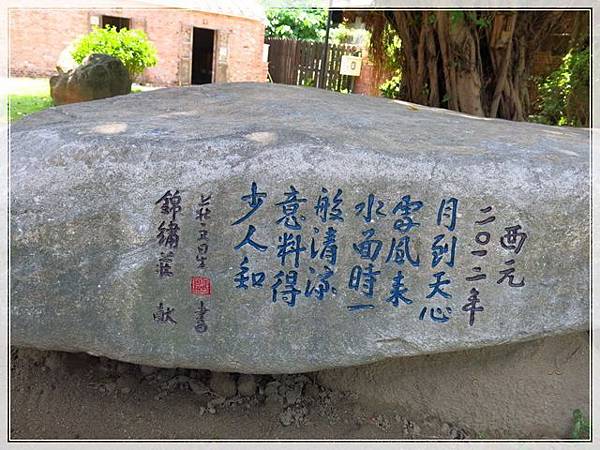 西元
二〇一二年
月到天心
處風來
水面時一
般清涼
意料得
少人知
書
錦繡莊 献